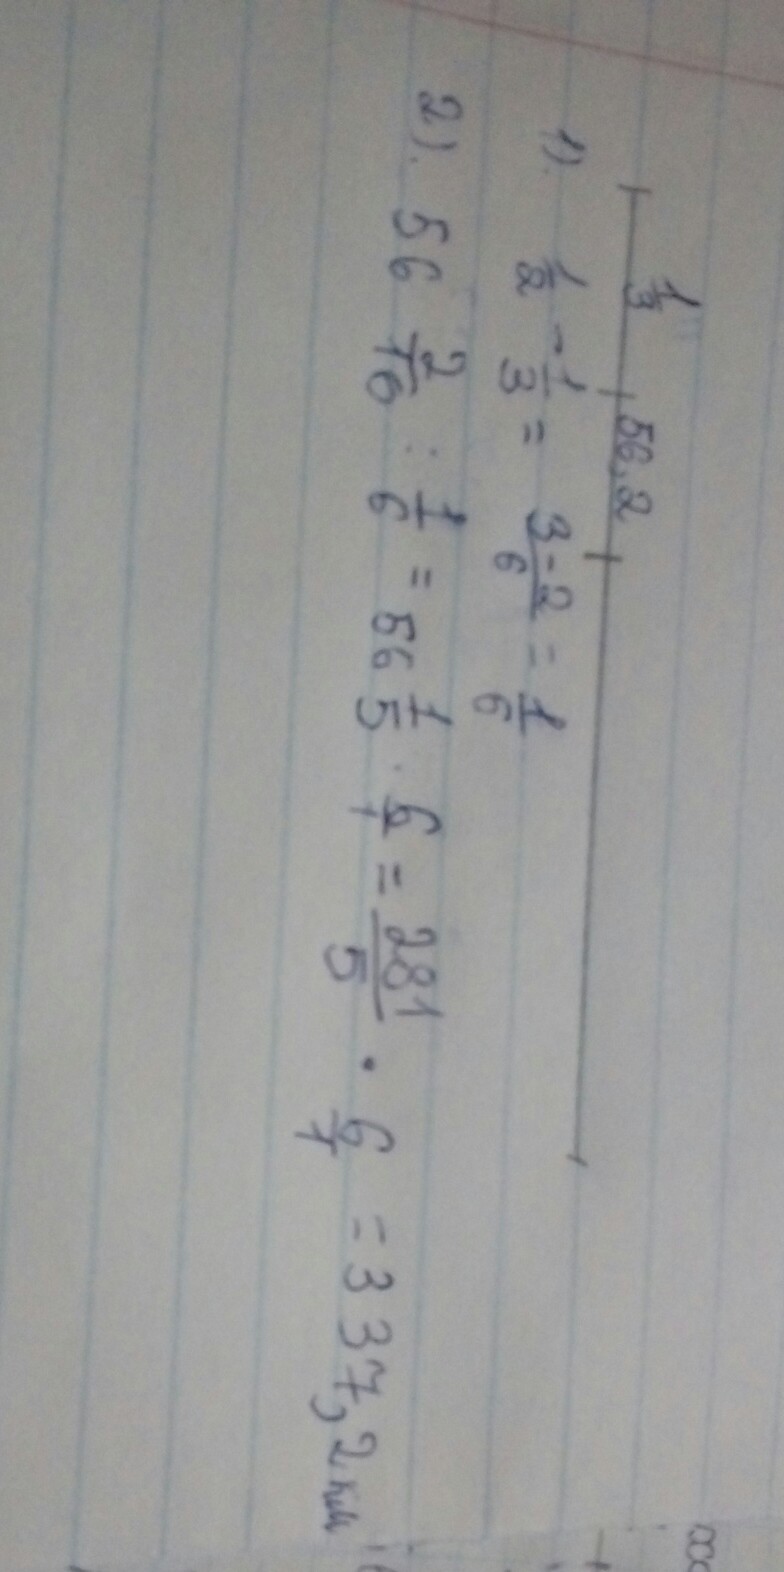 1/3 56,2
1). 1/2 - 1/3 = 3-2/6 = 1/6
2). 56 2/10 : 1/6 = 56 1/5 · 6/1 = 281/5 · 6/1 = 337,2 км